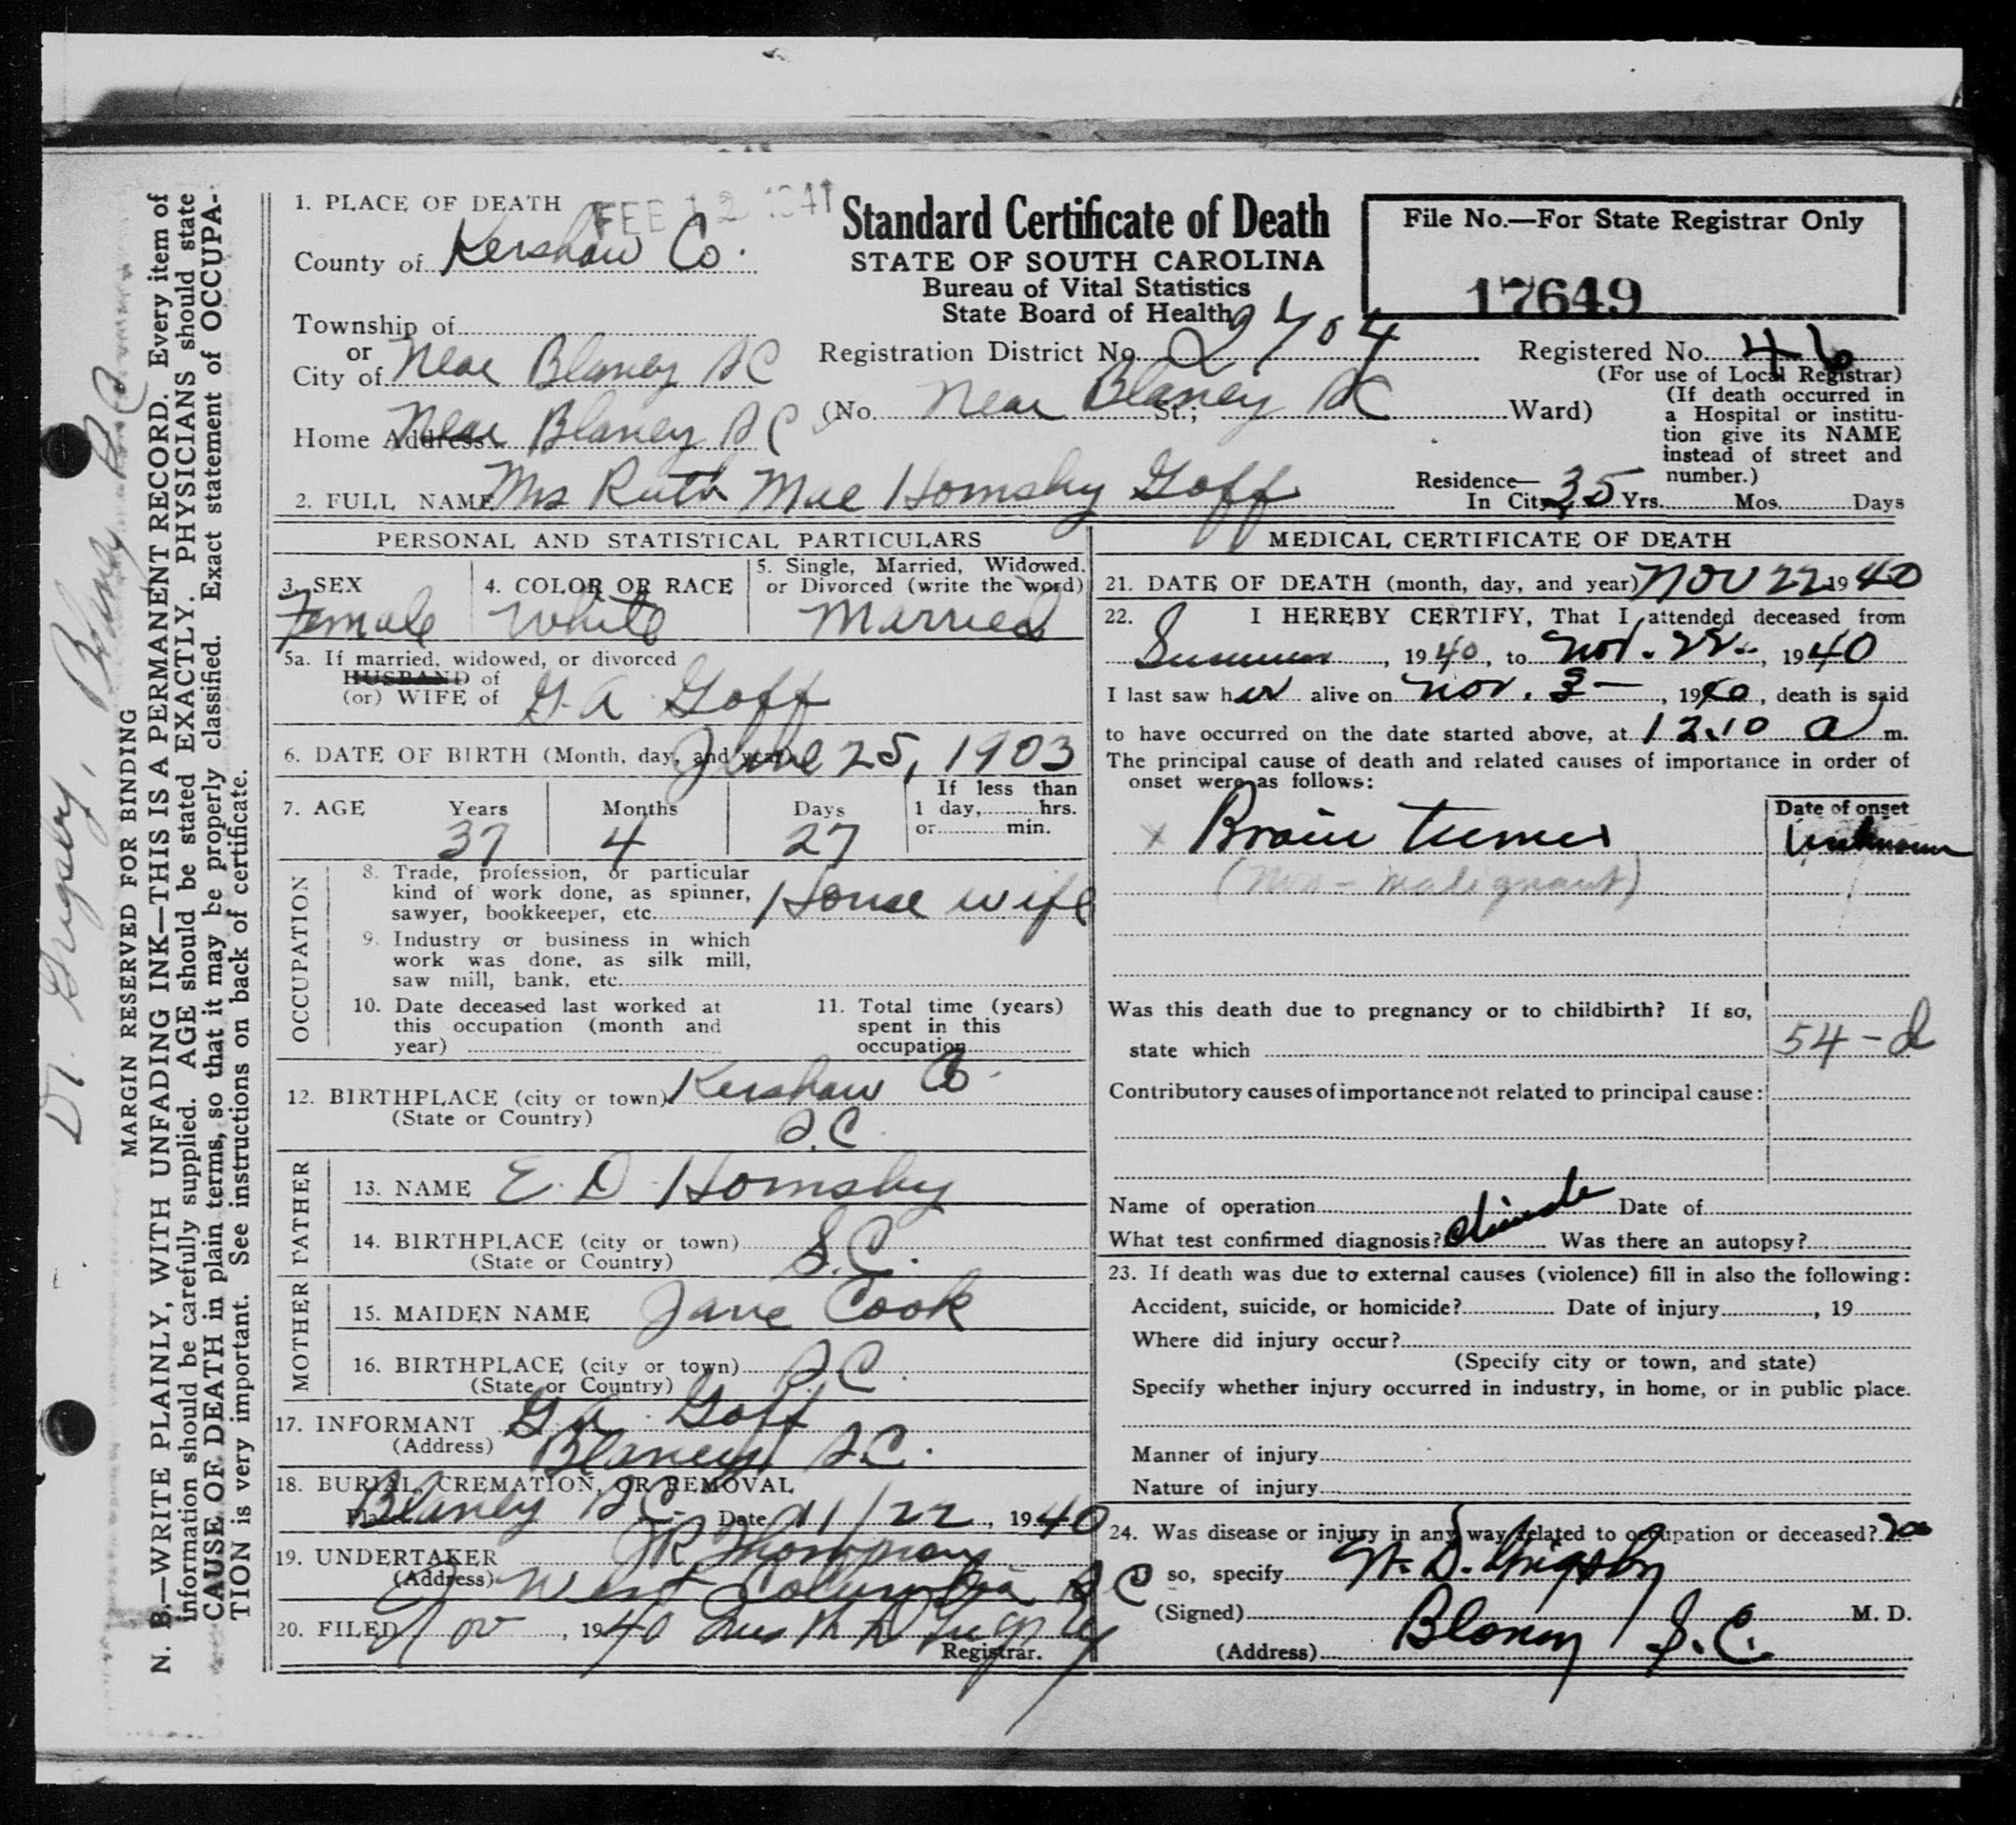 FEB 12 1941
1. PLACE OF DEATH
County of Kershaw Co.
Township of
or
City of Near Blaney SC
Home Address Near Blaney SC
2. FULL NAME Mrs Ruth Mae Hornsby Goff
Standard Certificate of Death
STATE OF SOUTH CAROLINA
Bureau of Vital Statistics
State Board of Health
Registration District No. 2704
(No. Near Blaney SC St.; Ward)
File No.—For State Registrar Only
17649
Registered No. 46
(For use of Local Registrar)
(If death occurred in
a Hospital or institu-
tion give its NAME
instead of street and
number.)
Residence—
In City 35 Yrs. Mos. Days
PERSONAL AND STATISTICAL PARTICULARS
3. SEX
Female
4. COLOR OR RACE
White
5. Single, Married, Widowed,
or Divorced (write the word)
Married
5a. If married, widowed, or divorced
HUSBAND of
(or) WIFE of G. A Goff
6. DATE OF BIRTH (Month, day, and year) June 25, 1903
7. AGE Years Months Days
37 4 27
If less than
1 day, hrs.
or min.
OCCUPATION
8. Trade, profession, or particular
kind of work done, as spinner,
sawyer, bookkeeper, etc. House wife
9. Industry or business in which
work was done, as silk mill,
saw mill, bank, etc.
10. Date deceased last worked at
this occupation (month and
year)
11. Total time (years)
spent in this
occupation
12. BIRTHPLACE (city or town) Kershaw Co.
(State or Country) S.C.
FATHER
13. NAME E. D Hornsby
14. BIRTHPLACE (city or town) S.C.
(State or Country)
MOTHER
15. MAIDEN NAME Jane Cook
16. BIRTHPLACE (city or town) S.C.
(State or Country)
17. INFORMANT G. A. Goff
(Address) Blaney S.C.
18. BURIAL, CREMATION, OR REMOVAL
Place Blaney S.C. Date 11/22, 1940
19. UNDERTAKER J R Thompson
(Address) West Columbia S C
20. FILED Nov, 1940
Registrar.
MEDICAL CERTIFICATE OF DEATH
21. DATE OF DEATH (month, day, and year) NOV 22 1940
22. I HEREBY CERTIFY, That I attended deceased from
Summer, 1940, to Nov. 22, 1940
I last saw her alive on Nov. 3, 1940, death is said
to have occurred on the date started above, at 12.10 a m.
The principal cause of death and related causes of importance in order of
onset were as follows:
Date of onset
x Brain tumor Unknown
(Non-malignant)
Was this death due to pregnancy or to childbirth? If so,
state which
54-d
Contributory causes of importance not related to principal cause:
Name of operation Date of
What test confirmed diagnosis? Was there an autopsy?
23. If death was due to external causes (violence) fill in also the following:
Accident, suicide, or homicide? Date of injury, 19
Where did injury occur?
(Specify city or town, and state)
Specify whether injury occurred in industry, in home, or in public place.
Manner of injury
Nature of injury
24. Was disease or injury in any way related to occupation or deceased? no
so, specify
(Signed) W. D. Grigsby M. D.
(Address) Blaney S.C.
MARGIN RESERVED FOR BINDING
N. B.—WRITE PLAINLY, WITH UNFADING INK—THIS IS A PERMANENT RECORD. Every item of
information should be carefully supplied. AGE should be stated EXACTLY. PHYSICIANS should state
CAUSE OF DEATH in plain terms, so that it may be properly classified. Exact statement of OCCUPA-
TION is very important. See instructions on back of certificate.
Dr. Grigsby, Blaney S.C.